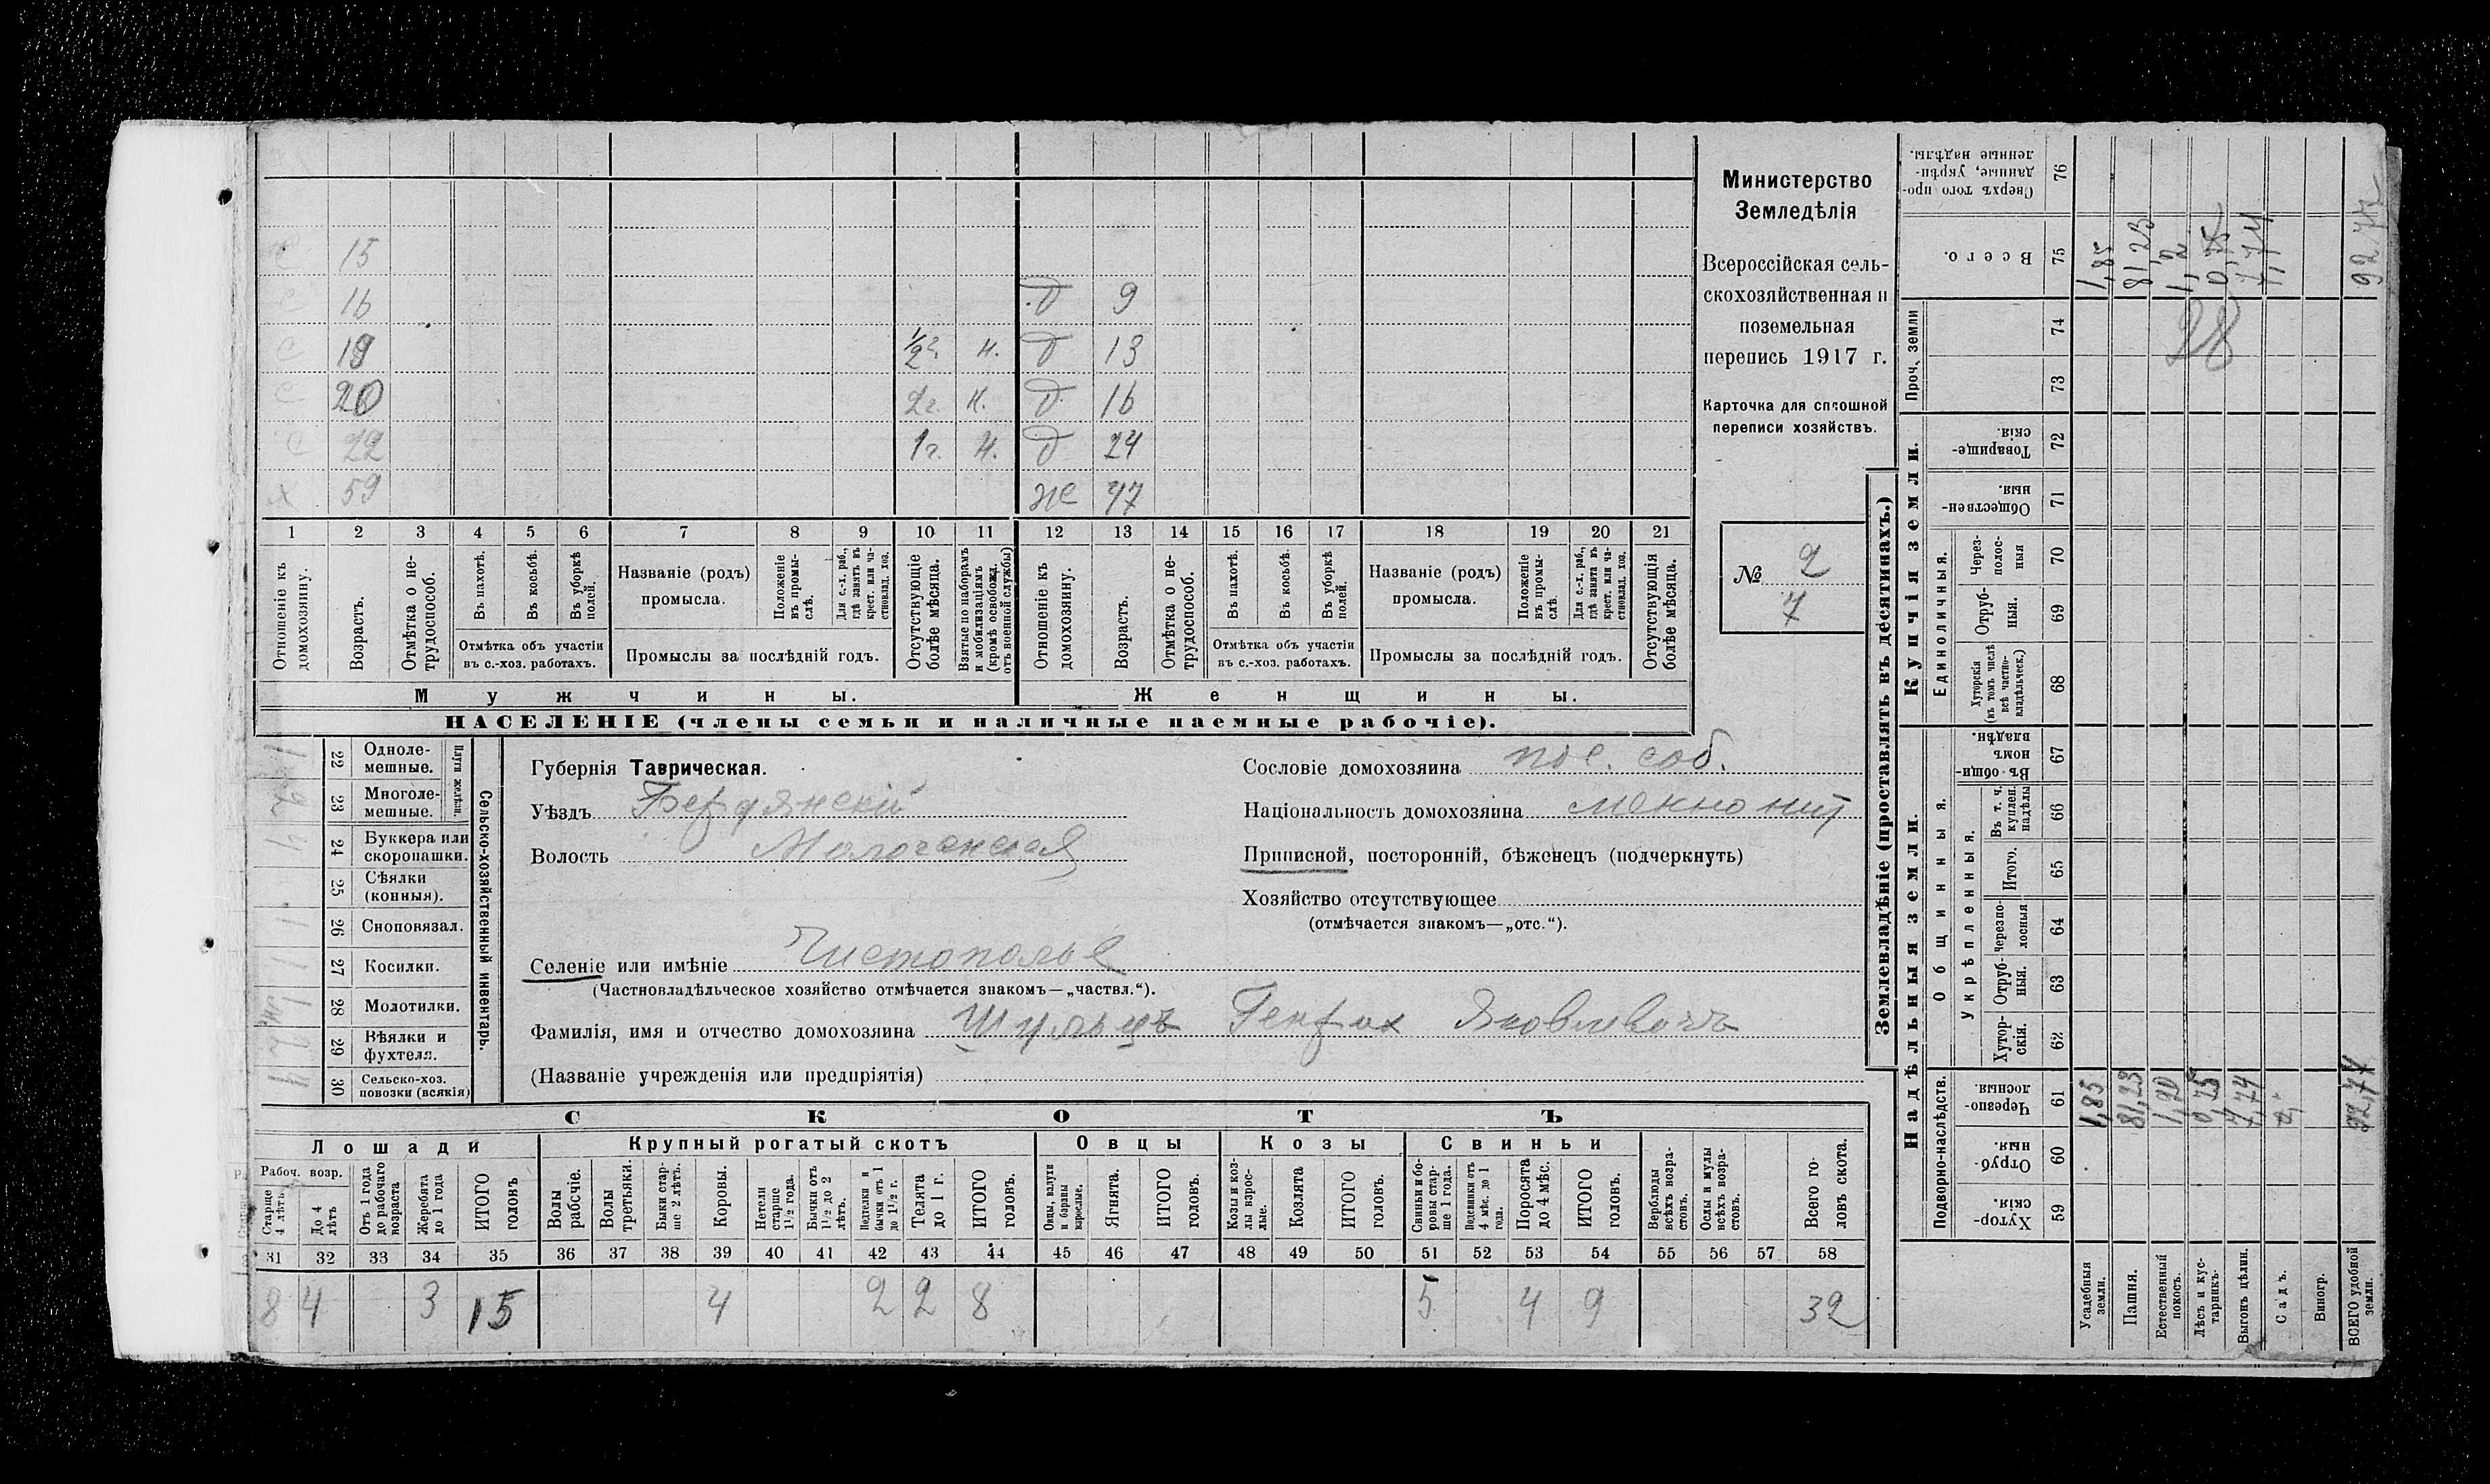 Министерство
Земледѣлія
Всероссійская сель-
скохозяйственная и
поземельная
перепись 1917 г.
Карточка для сплошной
переписи хозяйствъ.
№ 2
7
С 15
С 16 д 9
С 19 1/2 г. н. д 13
С 20 2 г. н. д 16
С 22 1 г. н. д 24
Х 59 же 47
1 2 3 4 5 6 7 8 9 10 11 12 13 14 15 16 17 18 19 20 21
Отношеніе къ домохозяину.
Возрастъ.
Отмѣтка о не-трудоспособ.
Въ пахотѣ.
Въ косьбѣ.
Въ уборкѣ полей.
Отмѣтка объ участіи
въ с.-хоз. работахъ.
Названіе (родъ)
промысла.
Положеніе въ промы-слѣ.
Для с.-х. раб., гдѣ занятъ въ крест. или ча-стновлад. хоз.
Промыслы за послѣдній годъ.
Отсутствующіе болѣе мѣсяца.
Взятые по наборамъ и мобилизаціямъ (кромѣ освобожд. отъ военной службы)
Отношеніе къ домохозяину.
Возрастъ.
Отмѣтка о не-трудоспособ.
Въ пахотѣ.
Въ косьбѣ.
Въ уборкѣ полей.
Отмѣтка объ участіи
въ с.-хоз. работахъ.
Названіе (родъ)
промысла.
Положеніе въ промы-слѣ.
Для с.-х. раб., гдѣ занята въ крест. или ча-стновлад. хоз.
Промыслы за послѣдній годъ.
Отсутствующія болѣе мѣсяца.
Мужчины. Женщины.
НАСЕЛЕНІЕ (члены семьи и наличные наемные рабочіе).
Сельско-хозяйственный инвентарь.
Плуги желѣзн.
22 Одноле-мешные. 1
23 Многоле-мешные. 2
24 Буккера или скоропашки.
25 Сѣялки (конныя).
26 Сноповязал. 1
27 Косилки. 1
28 Молотилки.
29 Вѣялки и фухтеля. 2
30 Сельско-хоз. повозки (всякія) 4
Губернія Таврическая.
Уѣздъ Бердянскій
Волость Молочанская
Селеніе или имѣніе Чистополье
(Частновладѣльческое хозяйство отмѣчается знакомъ—„частвл.“).
Фамилія, имя и отчество домохозяина Шульцъ Генрих Яковлевичъ
(Названіе учрежденія или предпріятія)
Сословіе домохозяина пос. соб.
Національность домохозяина меннонит
Приписной, посторонній, бѣженецъ (подчеркнуть)
Хозяйство отсутствующее
(отмѣчается знакомъ—„отс.“).
СКОТЪ
Лошади Крупный рогатый скотъ Овцы Козы Свиньи
Рабоч. возр.
Старше 4 лѣтъ.
До 4 лѣтъ
Отъ 1 года до рабочаго возраста
Жеребята до 1 года
ИТОГО головъ
Волы рабочіе.
Волы третьяки.
Быки стар-ше 2 лѣтъ.
Коровы.
Нетели старше 1 1/2 года.
Бычки отъ 1 1/2 до 2 лѣтъ.
Подтелки и бычки отъ 1 до 1 1/2 г.
Телята до 1 г.
ИТОГО головъ.
Овцы, валухи и бараны взрослые.
Ягнята.
ИТОГО головъ.
Козы и коз-лы взрос-лые.
Козлята
ИТОГО головъ.
Свиньи и бо-ровы стар-ше 1 года.
Подсвинки отъ 4 мѣс. до 1 года.
Поросята до 4 мѣс.
ИТОГО головъ.
Верблюды всѣхъ возра-стовъ.
Ослы и мулы всѣхъ возра-стовъ.
Всего го-ловъ скота.
31 32 33 34 35 36 37 38 39 40 41 42 43 44 45 46 47 48 49 50 51 52 53 54 55 56 57 58
8 4 3 15 4 2 2 8 5 4 9 32
Землевладѣніе (проставлять въ десятинахъ.)
Надѣльныя земли. Купчія земли. Проч. земли
Подворно-наслѣдств.
Общинныя.
Укрѣпленныя.
Единоличныя.
59 Хутор-скія.
60 Отруб-ныя.
61 Черезпо-лосныя.
62 Хутор-скія.
63 Отруб-ныя.
64 Черезпо-лосныя
65 Итого.
66 Въ т. ч. куплен. надѣлы
67 Въ общи-номъ владѣн.
68 Хуторскія (въ томъ числѣ всѣ частно-владѣльческ.)
69 Отруб-ныя.
70 Через-полос-ныя
71 Обществен-ныя.
72 Товарище-скія.
73
74
75 Всего.
76 Сверхъ того про-данные, укрѣп-ленные надѣлы.
Усадебныя земли. 1,85 1,85
Пашня. 81,23 81,23
Естественный покосъ. 1,20
Лѣсъ и кус-тарникъ. 0,75 0,75
Выгонъ цѣлин. 7,74 7,74
Садъ.
Виногр.
ВСЕГО удобной земли. 92,77 92,77
28